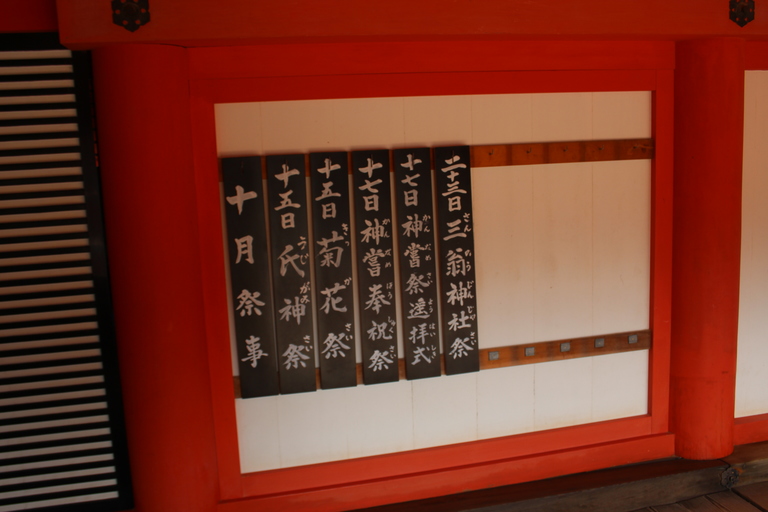 十月祭事
十五日氏神祭
十五日菊花祭
十七日神嘗奉祝祭
十七日神嘗祭遙拝式
二十三日三翁神社祭